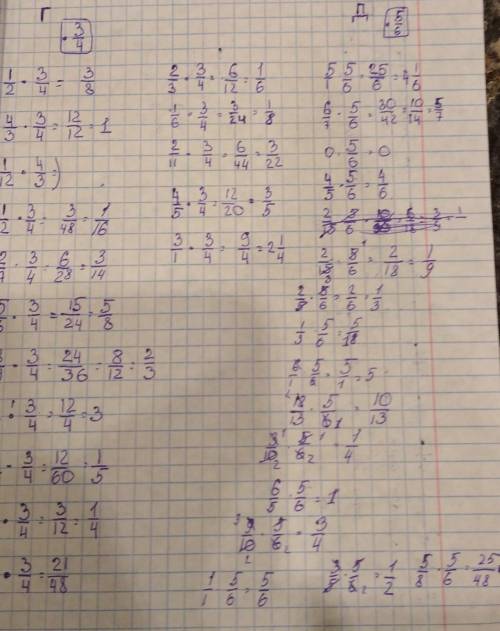 Г
· 3/4
1/2 · 3/4 = 3/8
4/3 · 3/4 = 12/12 = 1
1/12 · 4/3 = )
1/2 · 3/4 = 3/48 = 1/16
2/7 · 3/4 = 6/28 = 3/14
· 3/4 = 15/24 = 5/8
· 3/4 = 24/36 = 8/12 = 2/3
· 3/4 = 12/4 = 3
· 3/4 = 12/60 = 1/5
· 3/4 = 3/12 = 1/4
· 3/4 = 21/48
2/3 · 3/4 = 6/12 = 1/6
1/6 · 3/4 = 3/24 = 1/8
2/11 · 3/4 = 6/44 = 3/22
4/5 · 3/4 = 12/20 = 3/5
3/1 · 3/4 = 9/4 = 2 1/4
Д
· 5/6
5/1 · 5/6 = 25/6 = 4 1/6
6/7 · 5/6 = 30/42 = 10/14 = 5/7
0 · 5/6 = 0
4/5 · 5/6 = 4/6
2/15 · 5/6 = 2/18 = 1/9
2/5 · 5/6 = 2/6 = 1/3
1/3 · 5/6 = 5/18
6/1 · 5/6 = 5/1 = 5
12/13 · 5/6 = 10/13
3/10 · 5/6 = 1/4
6/5 · 5/6 = 1
9/10 · 5/6 = 3/4
1/1 · 5/6 = 5/6
3/5 · 5/6 = 1/2
5/8 · 5/6 = 25/48